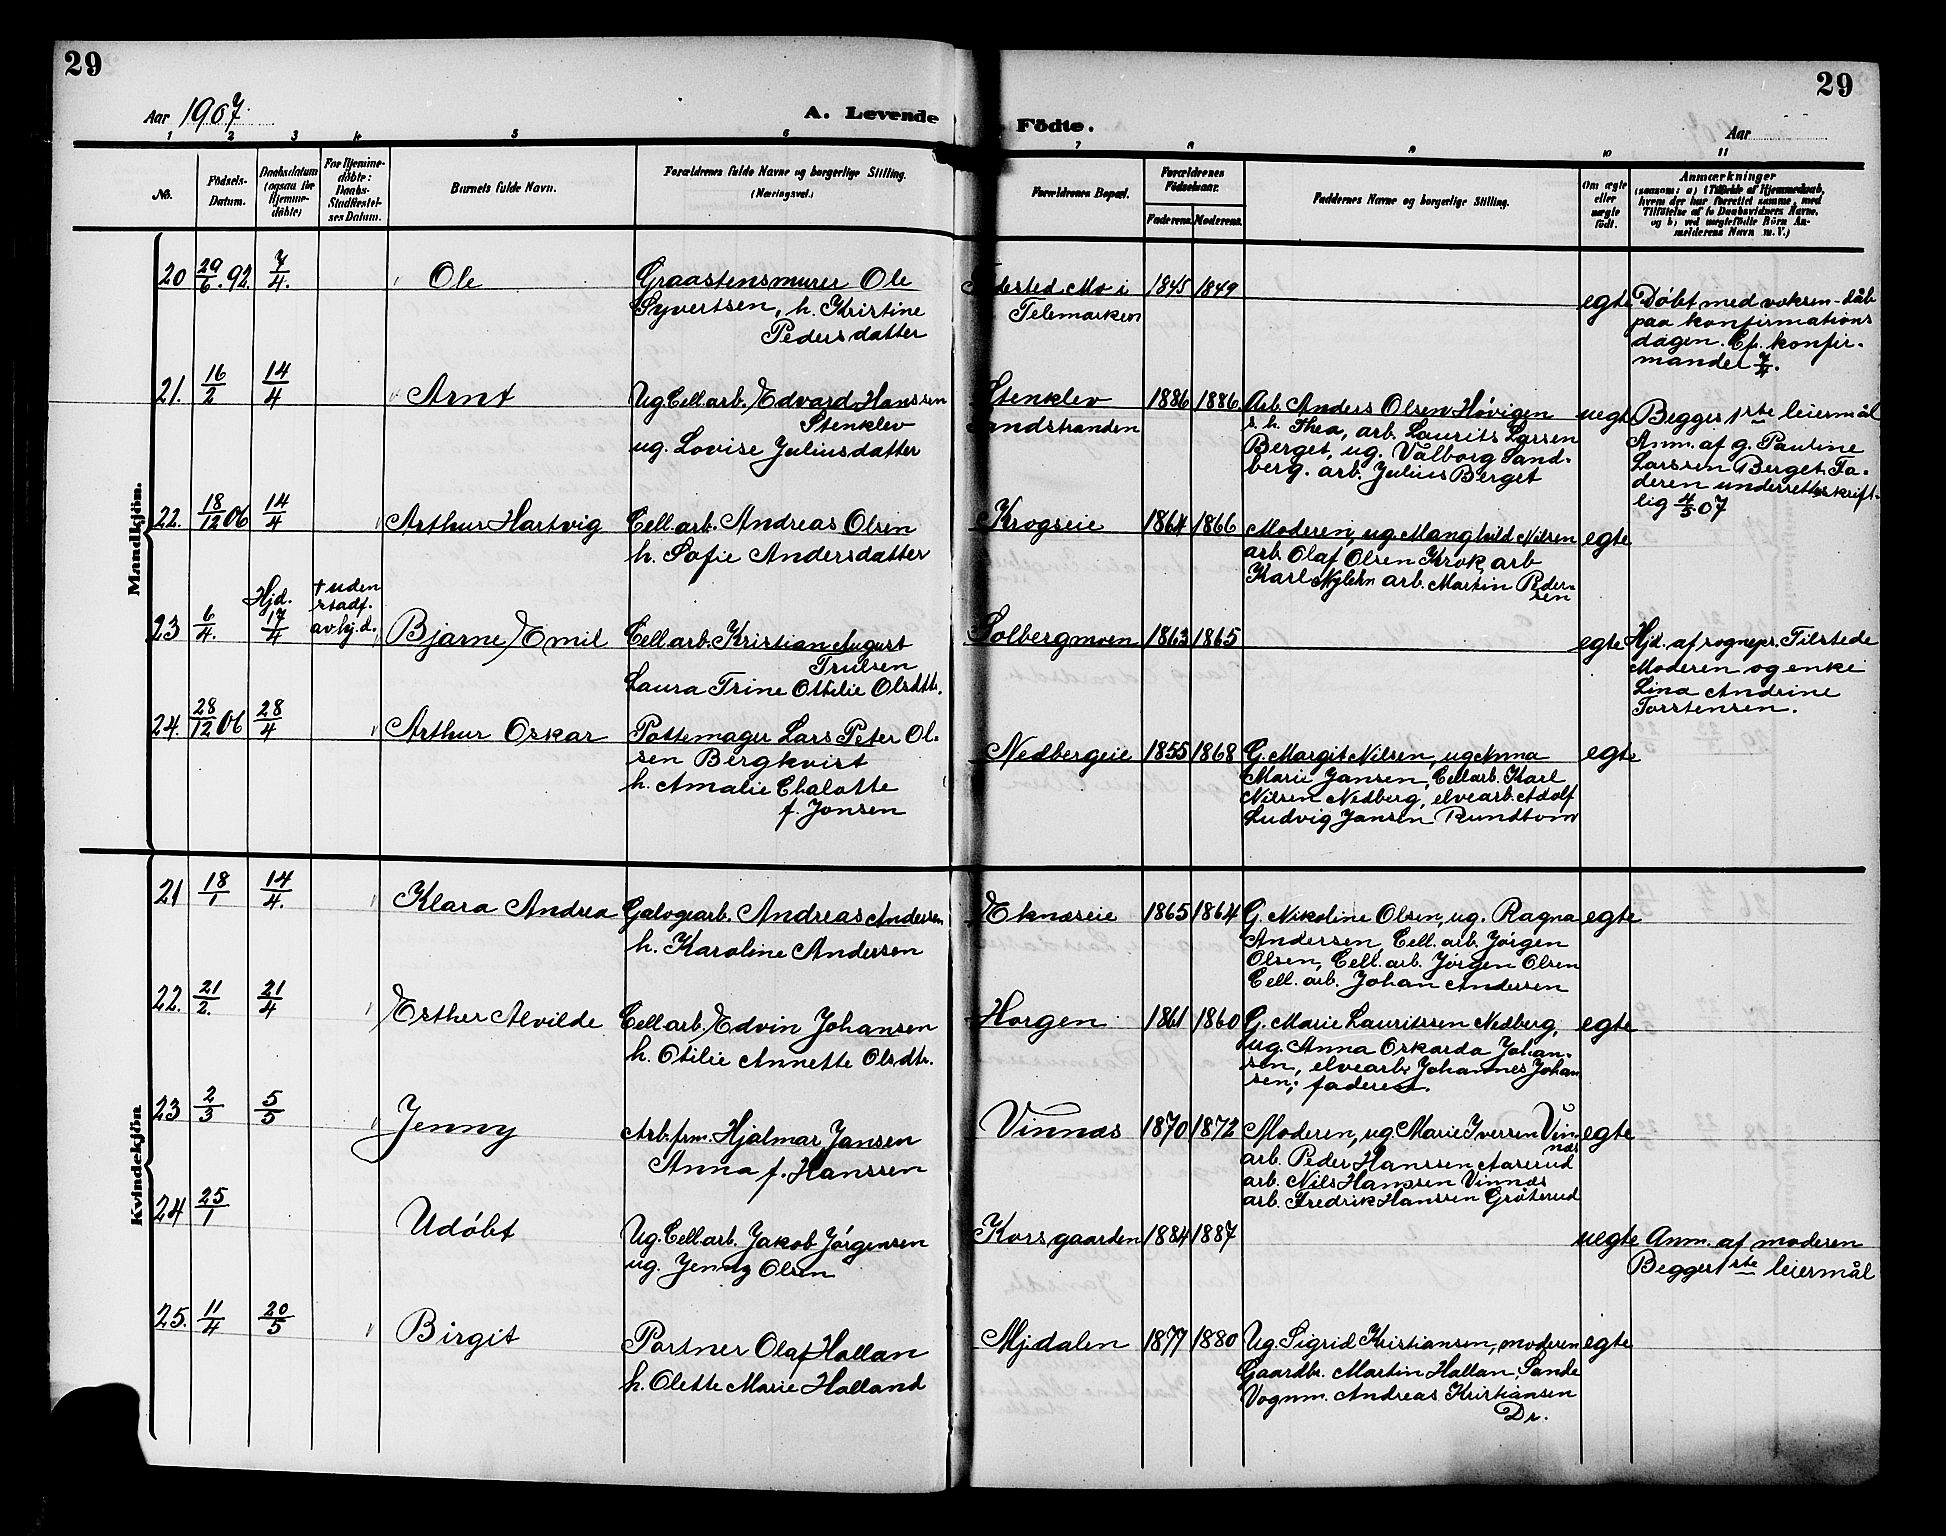 29
29
Aar 1907.
A. Levende Födte.
Aar
1 2 3 4 5 6 7 8 9 10 11
No.
Födsels-Datum.
Daabsdatum (ogsaa for Hjemme-döbte)
For Hjemme-döbte: Daabs-Stadfæstel-ses Datum.
Barnets fulde Navn.
Forældrenes fulde Navne og borgerlige Stilling. (Næringsvei.)
Forældrenes Bopæl.
Forældrenes Födselsaar.
Faderens. Moderens.
Faddernes Navne og borgerlige Stilling.
Om ægte eller uægte födt.
Anmærkninger
(saasom: a) i Tilfælde af Hjemmedaab, hvem der har forrettet samme, med Tilföielse af to Daabsvidners Navne, og b) ved uægtefödte Börn An-melderens Navn m. V.)
Mandkjön.
20 29/6.92. 7/4. Ole
Graastensmurer Ole
Syvertsen, h. Kristine
Pedersdatter
Mo i
Telemarken
1845 1849
egte
Døbt med voksen-dåb
paa konfirmations
dagen. Cf. konfir-
mander 7/4.
21. 16/2 14/4 Arnt
Ug. Cell.arb. Edvard Hanssen
Stenklev
ug. Lovise Juliusdatter
Stenklev
Sandstranden
1886 1886
Arb. Anders Olsen Høvigen
s. h. Thea, arb. Laurits Larsen
Berget, ug. Valborg Sand-
berg. arb. Julius Berget
uegte
Begges 1ste leiermål
Anm. af g. Pauline
Larssen Berget. Fa-
deren underrettet skrift-
lig 4/5 07
22. 18/12 06 14/4 Arthur Hartvig
Cell.arb. Andreas Olsen
h. Sofie Andersdatter
Krogseie
1864 1866
Moderen, ug. Manghild Nilsen
arb. Olaf Olsen Krok, arb
Karl Nylehn arb. Martin Peder-
sen
egte
23 6/4. Hjd. 17/4
† uden
stadf.
av hj.d.
Bjarne Emil
Cell.arb. Kristian August
Trulsen
Laura Trine Ottilie Olsdtr.
Solbergmoen
1863 1865
egte
Hjd. af sognepr. Tilstede
Moderen og enke
Lina Andrine
Torstensen.
24. 28/12 06 28/4 Arthur Oskar
Pottemager Lars Peter Ol-
sen Bergkvist
h. Amalie Chalotte
f. Jonsen
Nedbergeie
1855 1868
G. Margit Nilsen, ug Anna
Marie Jansen, Cell.arb. Karl
Nilsen Nedberg, elvearb. Adolf
Ludvig Jansen Rundtom
egte
Kvindekjön.
21 18/1 14/4. Klara Andrea
Galogearb. Andreas Andersen
h. Karoline Andersen
Eknæseie
1865 1864
G. Nikoline Olsen, ug. Ragna
Andersen, Cell. arb. Jörgen
Olsen, Cell. arb. Jørgen Olsen
Cell. arb. Johan Andersen
egte
22. 21/2. 21/4 Esther Alvilde
Cell.arb. Edvin Johansen
h. Otilie Annette Olsdtr.
Horgen
1861 1860
G. Marie Lauritssen Nedberg,
ug. Anna Oskarda Johan-
sen, elvearbr Johannes Johan
sen; faderen.
egte
23 2/3 5/5 Jenny
Arb.frm. Hjalmar Jansen
Anna f. Hanssen
Vinnæs
1870 1872
Moderen, ug. Marie Iversen Vin-
næs
arb. Peder Hanssen Aaserud
arb. Nils Hanssen Vinnæs
arb. Fredrik Hanssen Grøtsrud
egte
24 25/1 Udøbt
Ug. Cell.arb. Jakob Jörgensen
ug. Jenny Olsen
Korsgaarden
1884 1887
uegte
Anm. af moderen
Begges 1ste leiermål
25. 11/4 20/5 Birgit
Portner Olaf Hallan
h. Olette Marie Halland
Mjdalen
1877 1880
Ug. Sigrid Kristiansen, moderen
Gaardbr. Martin Hallan, Sande
Vognm. Andreas Kristiansen
Dr.
egte